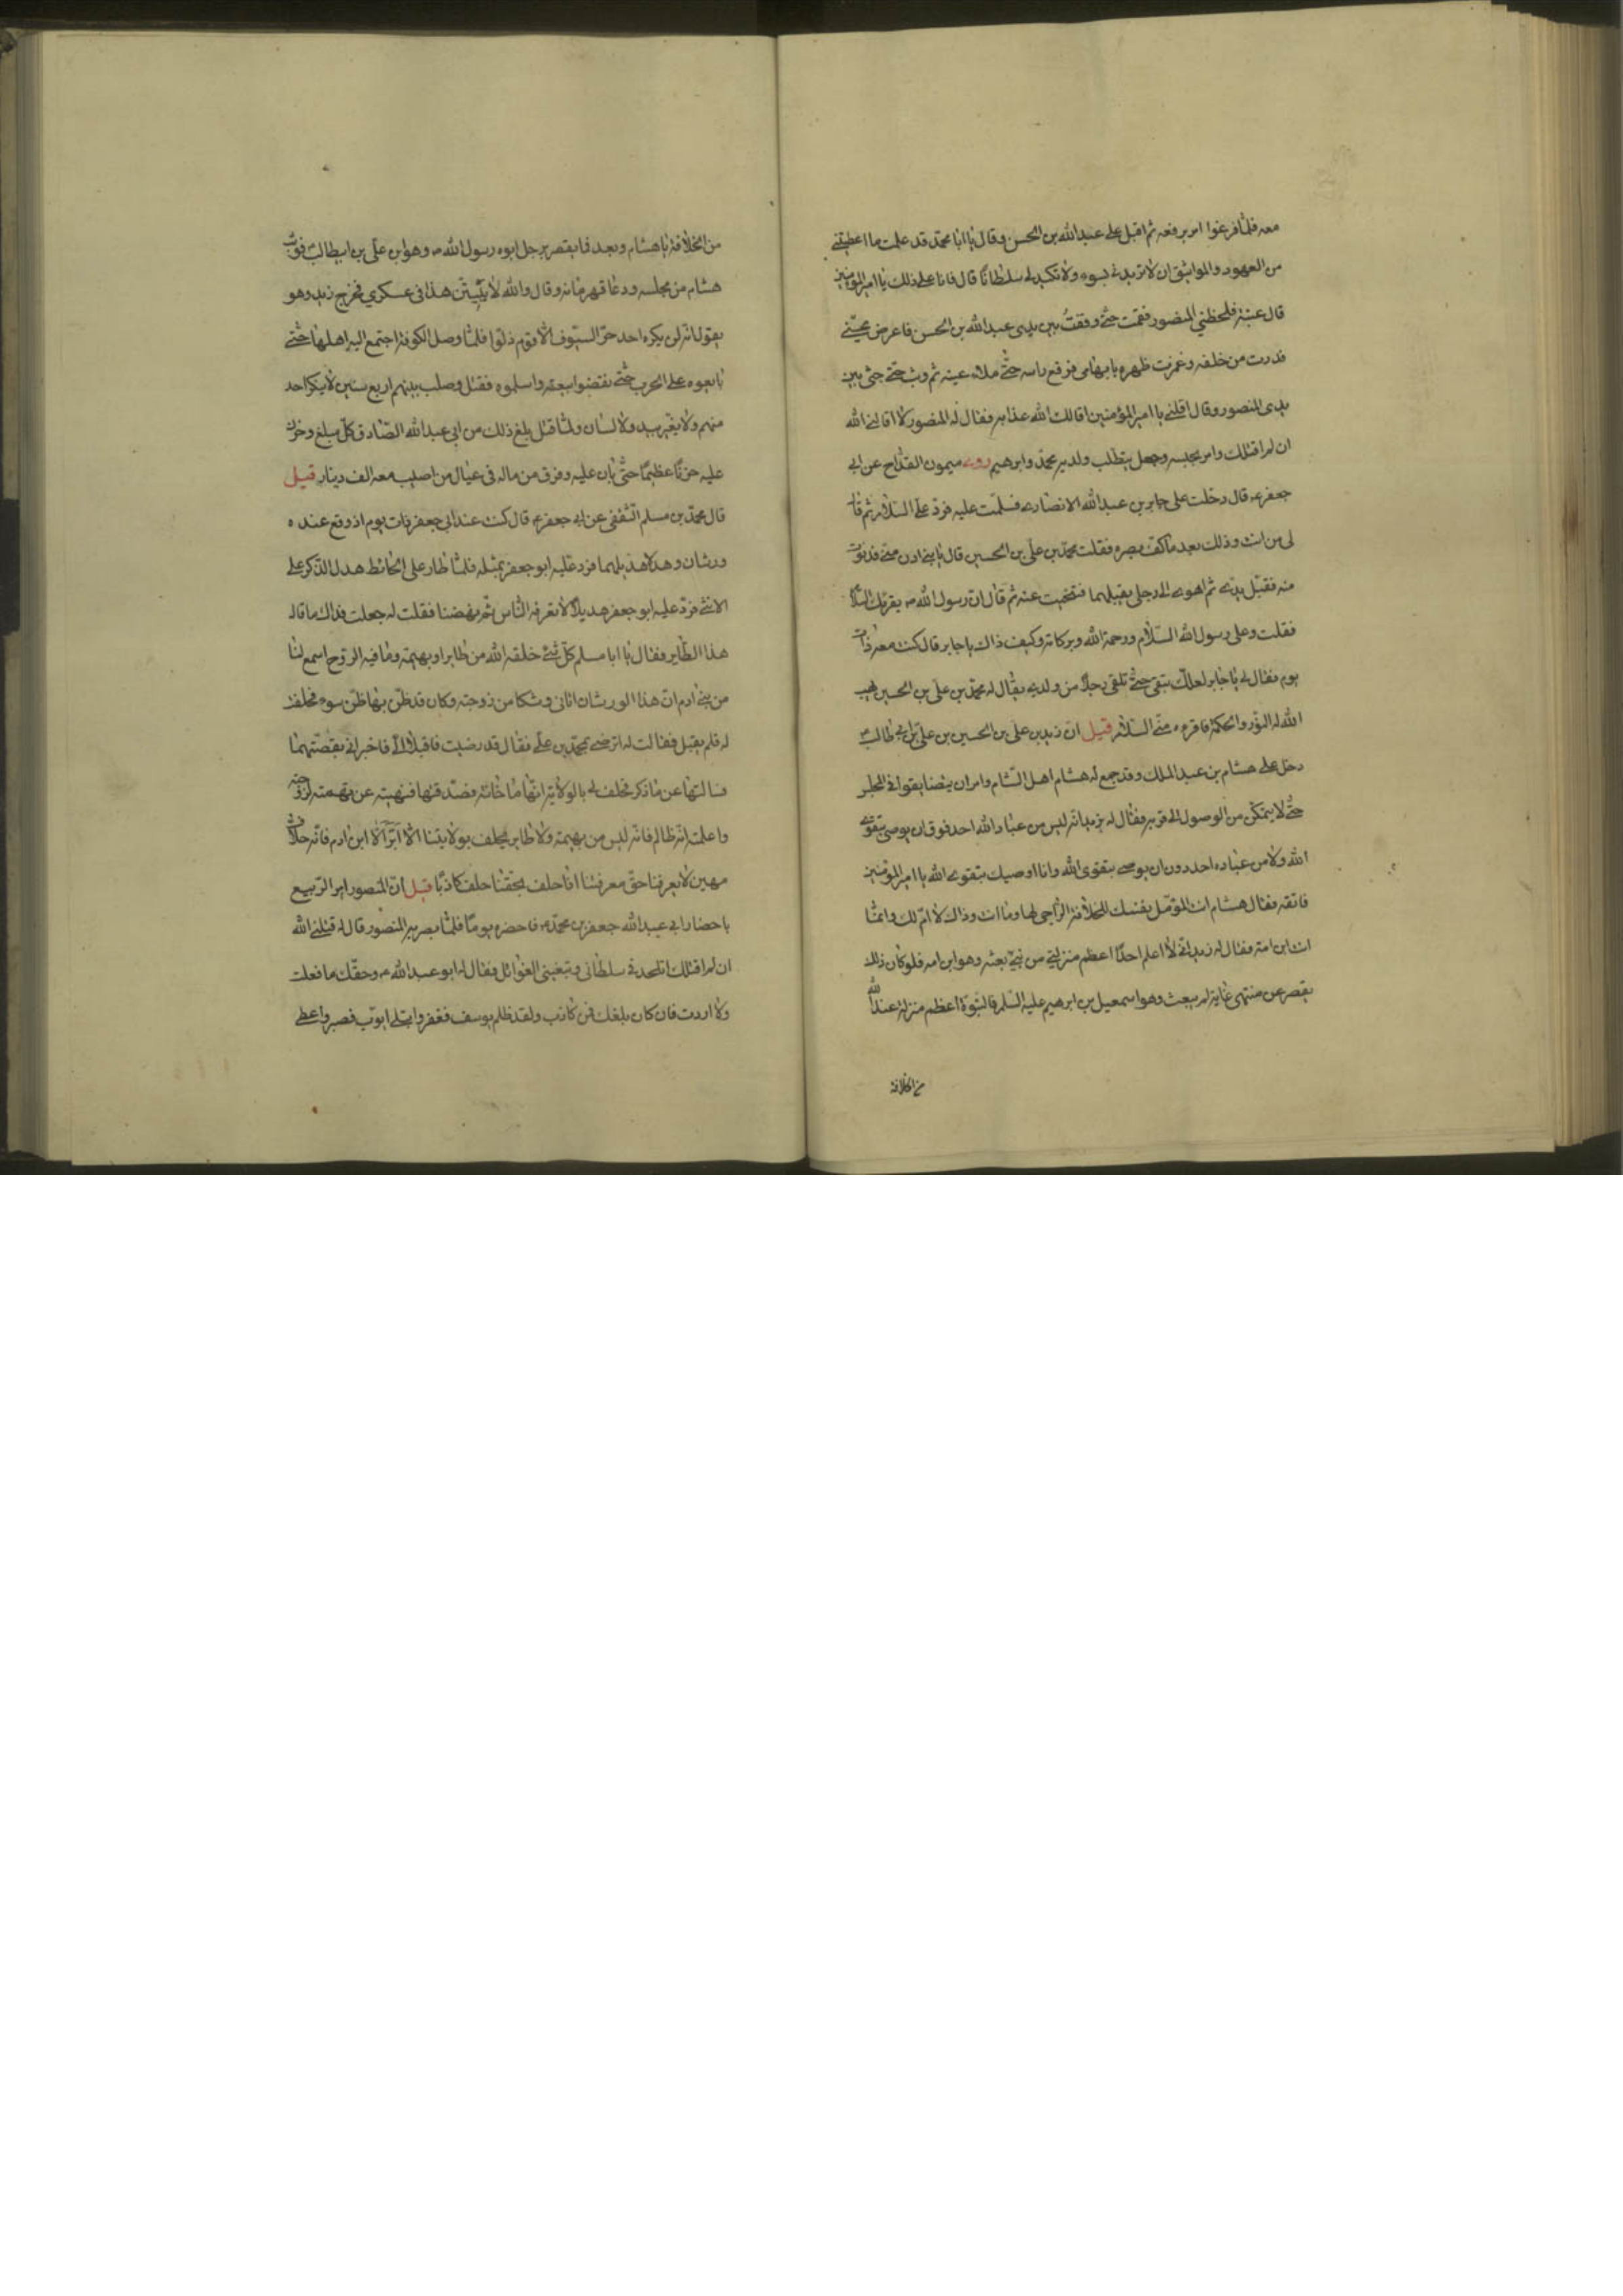 معه فلما فرغوا امر برفعه ثم اقبل على عبدالله بن الحسن وقال يا ابا محمد قد علمت ما اعطيتنى
من العهود والمواثيق ان لا تريدنى بسوء ولا تكيد لى سلطانا قال فانا على ذلك يا امير المؤمنين
قال عقبة فلحظنى المنصور فقمت حتى وقفت بين يدى عبدالله بن الحسن فاعرض عنى
فدرت من خلفه وغمزت ظهره بابهامى فرفع راسه حتى ملاء عينه ثم وثب حتى جثى بين
يدى المنصور وقال اقلنى يا امير المؤمنين اقالك الله عذابه فقال له المنصور لا اقالنى الله
ان لم اقتلك وامر بحبسه وجعل يتطلب ولديه محمد وابرهيم روى ميمون القداح عن ابى
جعفر ع قال دخلت على جابر بن عبدالله الانصارى فسلمت عليه فرد على السلام ثم قال
لى من انت وذلك بعد ما كف بصره فقلت محمد بن على بن الحسين قال يا بنى ادن منى فدنوت
منه فقبل يدى ثم اهوى الى رجلى يقبلهما فتنحيت عنه ثم قال ان رسول الله ص يقرئك السلام
فقلت وعلى رسول الله السلام ورحمة الله وبركاته وكيف ذاك يا جابر قال كنت معه ذات
يوم فقال لى يا جابر لعلك تبقى حتى تلقى رجلا من ولدى يقال له محمد بن على بن الحسين يهب
الله له النور والحكمة فاقرءه منى السلام قيل ان زيد بن على بن الحسين بن على بن ابى طالب ع
دخل على هشام بن عبد الملك وقد جمع له هشام اهل الشام وامر ان يتضايقوا فى المجلس
حتى لا يتمكن من الوصول الى قربه فقال له زيد انه ليس من عباد الله احد فوق ان يوصى بتقوى
الله ولا من عباده احد دون ان يوصى بتقوى الله وانا اوصيك بتقوى الله يا امير المؤمنين
فاتقه فقال هشام انت المؤمل نفسك للخلافة الراجى لها وما انت وذاك لا ام لك وانما
انت ابن امة فقال له زيد انى لا اعلم احدا اعظم منزلة من نبى بعثه وهو ابن امة فلو كان ذلك
يقصر عن منتهى غاية لم يبعث وهو اسمعيل بن ابرهيم عليه السلم فالنبوة اعظم منزلة عند الله
من الخلافة
من الخلافة يا هشام وبعد فما يقصر برجل ابوه رسول الله ص وهو ابن على بن ابيطالب ع فوثب
هشام من مجلسه ودعا قهرمانه وقال والله لا يبيتن هذا فى عسكري فخرج زيد وهو
يقول انه لن يكره احد حر السيوف الا قوم ذلوا فلما وصل الكوفة اجتمع اليه اهلها حتى
بايعوه على الحرب حتى نقضوا بيعته واسلموه فقتل وصلب بينهم اربع سنين لا ينكر احد
منهم ولا يغير بيد ولا لسان ولما قتل بلغ ذلك من ابى عبدالله الصادق كل مبلغ وحزن
عليه حزنا عظيما حتى بان عليه وفرق من ماله فى عيال من اصيب معه الف دينار قيل
قال محمد بن مسلم الثقفى عن ابى جعفر ع قال كنت عند ابى جعفر ذات يوم اذ وقع عنده
ورشان وهدلا هديلهما فرد عليه ابو جعفر بمثله فلما طار على الحائط هدل الذكر على
الانثى فرد عليه ابو جعفر هديلا لا تعرفه الناس ثم نهضنا فقلت له جعلت فداك ما قال
هذا الطاير فقال يا ابا مسلم كل شئ خلقه الله من طاير او بهيمة وما فيه الروح اسمع لنا
من بنى ادم ان هذا الورشان اتانى وشكا من زوجته وكان قد ظن بها ظن سوء فحلفت
له فلم يقبل فقالت له اترضى بمحمد بن على فقال قد رضيت فاقبلا الى فاخبرانى بقصتهما
فسالتها عن ما ذكر فحلفت لى بالولاية انها ما خانته فصدقتها فنهيته عن تهمته لزوجته
واعلمته انه ظالم فانه ليس من بهيمة ولا طاير يحلف بولايتنا الا ابر الا ابن ادم فانه حلاف
مهين لا يعرفنا حق معرفتنا اذا حلف بحقنا حلف كاذبا قيل ان المنصور امر الربيع
باحضار ابى عبدالله جعفر بن محمد ع فاحضره يوما فلما بصر به المنصور قال له قتلنى الله
ان لم اقتلك اتلحد فى سلطانى وتبغينى الغوائل فقال له ابو عبدالله ع وحقك ما فعلت
ولا اردت فان كان بلغك فمن كاذب ولقد ظلم يوسف فغفر وابتلى ايوب فصبر واعطى